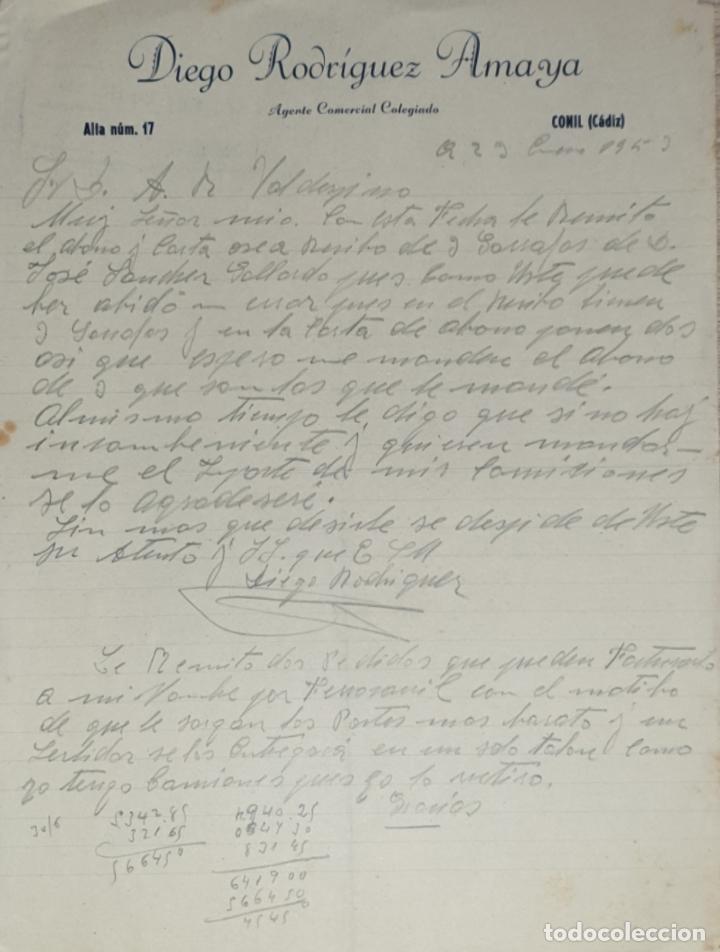 Diego Rodríguez Amaya
Agente Comercial Colegiado
Alta núm. 17
CONIL (Cádiz)
a 23 Enero 1953
Sr D. A. R Valdespino
Muy Señor mio. Con esta Fecha le Remito
el abono y Carta osea Resibo de 3 Garrafas de D.
José Sanchez Gallardo pues Como Uste puede
ber abido un error pues en el Resibo tienen
3 Garrafas y en la Carta de abono ponen dos
asi que espero me manden el Abono
de 3 que son las que le mandé.
Almismo tiempo le digo que si no hay
incombeniente y quieren mandar-
me el de mis Comisiones
se lo agradeseré.
Sin mas que desirle se despide de Uste
su Atento y SS. que E
Diego Rodriguez
Le Remito dos Pedidos que pueden
a mi Nombre por Ferrocarril con el motibo
de que le sargan los Portes mas barato y un
Serbidor se los Entregará en un solo talon Como
yo tengo Camiones pues yo lo retiro.
Gracias
30/6
5342.85
321 65
566450
4940.25
831 45
641900
566450
4545
todocoleccion
todocoleccion.net